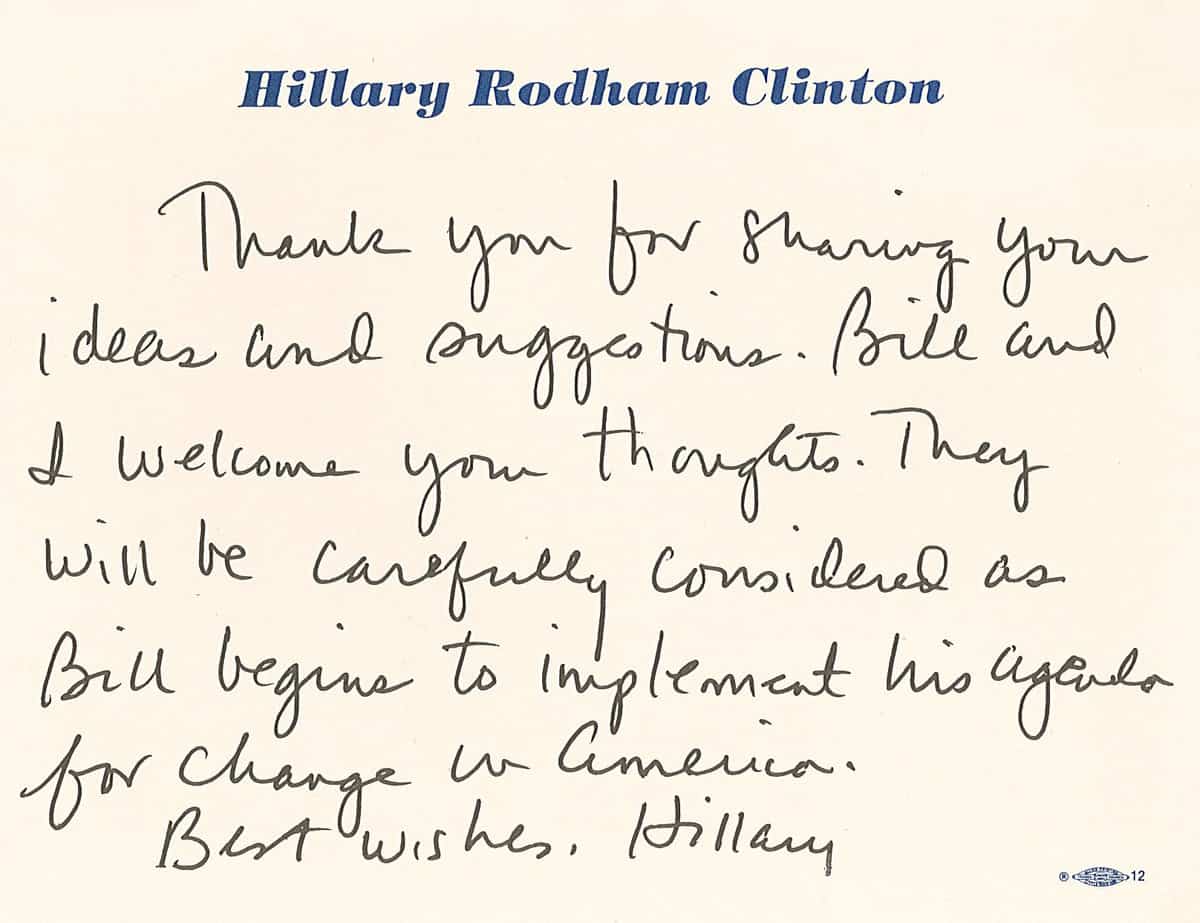 Hillary Rodham Clinton
Thank you for sharing your
ideas and suggestions. Bill and
I welcome your thoughts. They
will be carefully considered as
Bill begins to implement his agenda
for change in America.
Best wishes. Hillary
® 12